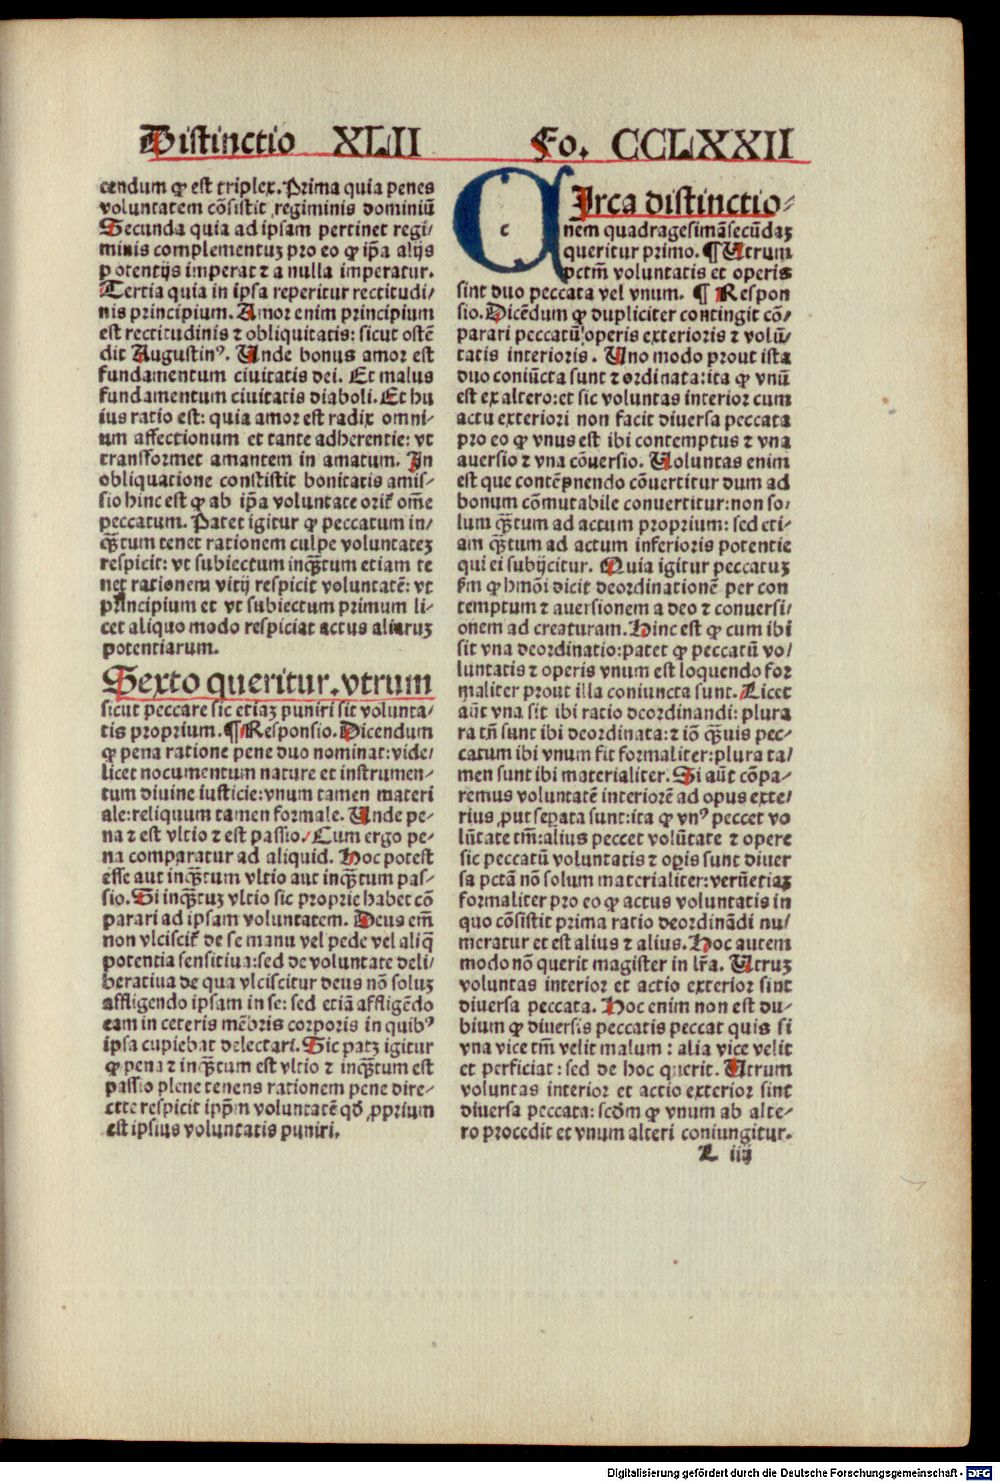 Distinctio XLII Fo. CCLXXII
cendum ꝙ est triplex. Prima quia penes
voluntatem cõsistit regiminis dominiũ
Secunda quia ad ipsam pertinet regi/
minis complementuꝫ pro eo ꝙ ip̃a alijs
potentijs imperat ⁊ a nulla imperatur.
Tertia quia in ipsa reperitur rectitudi/
nis principium. Amor enim principium
est rectitudinis ⁊ obliquitatis: sicut ostẽ
dit Augustinꝰ. Unde bonus amor est
fundamentum ciuitatis dei. Et malus
fundamentum ciuitatis diaboli. Et hu
ius ratio est: quia amor est radix omni-
um affectionum et tante adherentie: vt
transformet amantem in amatum. In
obliquatione constistit bonitatis amis-
sio hinc est ꝙ ab ip̃a voluntate orit᷑ om̃e
peccatum. Patet igitur ꝙ peccatum in/
qꝫtum tenet rationem culpe voluntateꝫ
respicit: vt subiectum inqꝫtum etiam te
net rationem vitij respicit voluntatẽ: vt
principium et vt subiectum primum li-
cet aliquo modo respiciat actus aliaruꝫ
potentiarum.
Sexto queritur. vtrum
sicut peccare sic etiaꝫ puniri sit volunta/
tis proprium. ¶ Responsio. Dicendum
ꝙ pena ratione pene duo nominat: vide/
licet nocumentum nature et instrumen-
tum diuine iusticie: vnum tamen materi
ale: reliquum tamen formale. Unde pe-
na ⁊ est vltio ⁊ est passio. Cum ergo pe-
na comparatur ad aliquid. Hoc potest
esse aut inqꝫtum vltio aut inqꝫtum pas-
sio. Si inqꝫtuꝫ vltio sic proprie habet cõ
parari ad ipsam voluntatem. Deus em̃
non vlciscit᷑ de se manu vel pede vel aliq̃
potentia sensitiua: sed de voluntate deli/
beratiua de qua vlciscitur deus nõ soluꝫ
affligendo ipsam in se: sed etiã affligẽdo
eam in ceteris mẽbris corporis in quibꝰ
ipsa cupiebat delectari. Sic patꝫ igitur
ꝙ pena ⁊ inqꝫtum est vltio ⁊ inqꝫtum est
passio plene tenens rationem pene dire-
cte respicit ipp̃m voluntatẽ qđ ꝓprium
est ipsius voluntatis puniri.
CIrca distinctio-
nem quadragesimãsecũdaꝫ
queritur primo. ¶ Utrum
pctm̃ voluntatis et operis
sint duo peccata vel vnum. ¶ Respon
sio. Dicẽdum ꝙ dupliciter contingit cõ/
parari peccatũ operis exterioris ⁊ volũ/
tatis interioris. Uno modo prout ista
duo coniũcta sunt ⁊ ordinata: ita ꝙ vnũ
est ex altero: et sic voluntas interior cum
actu exteriori non facit diuersa peccata
pro eo ꝙ vnus est ibi contemptus ⁊ vna
auersio ⁊ vna cõuersio. Uoluntas enim
est que contẽpnendo cõuertitur dum ad
bonum cõmutabile conuertitur: non so/
lum qꝫtum ad actum proprium: sed eti-
am qꝫtum ad actum inferioris potentie
qui ei subijcitur. Quia igitur peccatuꝫ
ẜm ꝙ hmõi dicit deordinationẽ per con
temptum ⁊ auersionem a deo ⁊ conuersi/
onem ad creaturam. Hinc est ꝙ cum ibi
sit vna deordinatio: patet ꝙ peccatũ vo/
luntatis ⁊ operis vnum est loquendo for
maliter prout illa coniuncta sunt. Licet
aũt vna sit ibi ratio deordinandi: plura
ra tñ sunt ibi deordinata: ⁊ iõ qꝫuis pec-
catum ibi vnum sit formaliter: plura ta/
men sunt ibi materialiter. Si aũt cõpa-
remus voluntatẽ interiorẽ ad opus exte/
rius ꝓut seꝑata sunt: ita ꝙ vnꝰ peccet vo
lũtate tm̃: alius peccet volũtate ⁊ opere
sic peccatũ voluntatis ⁊ oꝑis sunt diuer
sa pctã nõ solum materialiter: verũetiaꝫ
formaliter pro eo ꝙ actus voluntatis in
quo cõsistit prima ratio deordinãdi nu/
meratur et est alius ⁊ alius. Hoc autem
modo nõ querit magister in lr̃a. Utruꝫ
voluntas interior et actio exterior sint
diuersa peccata. Hoc enim non est du-
bium ꝙ diuersis peccatis peccat quis si
vna vice tm̃ velit malum: alia vice velit
et perficiat: sed de hoc querit. Utrum
voluntas interior et actio exterior sint
diuersa peccata: scđm ꝙ vnum ab alte-
ro procedit et vnum alteri coniungitur.
L iij
Digitalisierung gefördert durch die Deutsche Forschungsgemeinschaft - DFG